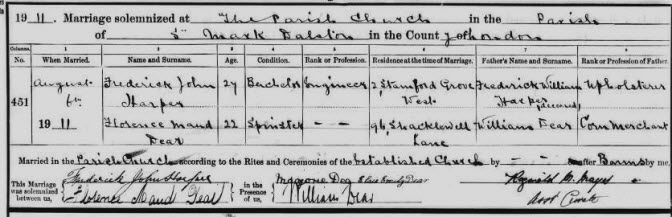 1911. Marriage solemnized at The Parish Church in the Parish
of St Mark Dalston in the County of London
Columns. 1 2 3 4 5 6 7 8
No. When Married. Name and Surname. Age. Condition. Rank or Profession. Residence at the time of Marriage. Father's Name and Surname. Rank or Profession of Father.
451 August 6th 1911 Frederick John Harper 27 Bachelor Engineer 2 Stamford Grove West Frederick William Harper (deceased) Upholsterer
Florence Maud Dear 22 Spinster – – 96, Shacklewell Lane William Dear Corn Merchant
Married in the Parish Church according to the Rites and Ceremonies of the Established Church by – – or after Banns by me,
This Marriage was solemnized between us, Frederick John Harper in the Presence of us, Dear Reginald
Florence Maud Dear William Dear